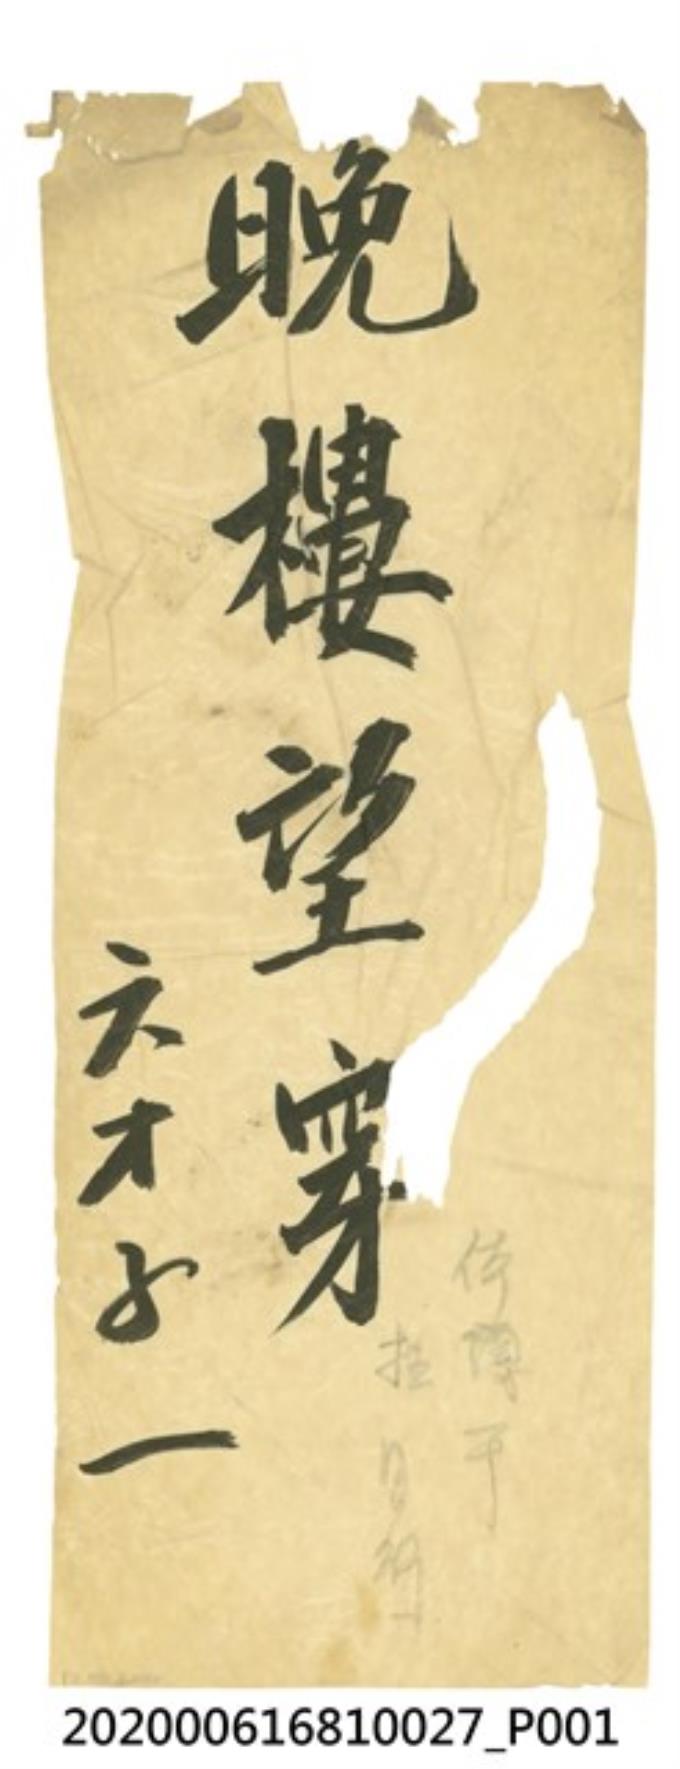 晚樓望穿
六才子一
202000616810027_P001